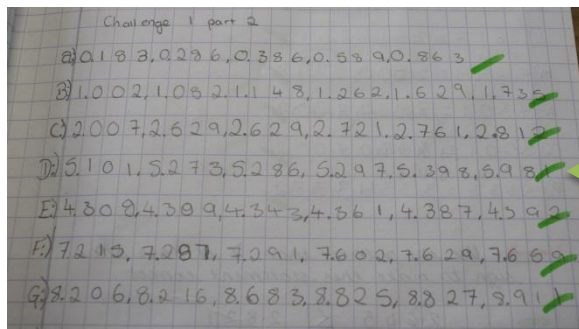 Challenge 1 part 2
a) 0.183, 0.286, 0.386, 0.589, 0.863
B) 1.002, 1.082, 1.148, 1.262, 1.629, 1.735
C) 2.007, 2.629, 2.629, 2.721. 2.761, 2.812
D) 5.101, 5.273, 5.286, 5.297, 5.398, 5.981
E) 4.308, 4.309, 4.343, 4.361, 4.387, 4.392
F) 7.215, 7.287, 7.291, 7.602, 7.629, 7.669
G) 8.206, 8.216, 8.683, 8.825, 8.827, 8.911